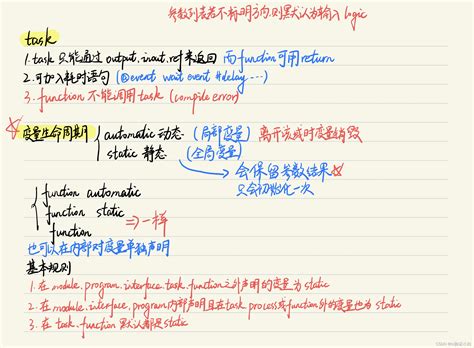 参数列表若不标明方向,则默认为输入 logic
task
1. task 只能通过 output.inout.ref 来返回 而 function 可用 return
2. 可加入耗时语句 (@event wait event #delay ...)
3. function 不能调用 task (compile error)
变量生命周期 { automatic 动态 (局部变量) 离开该域时变量销毁
static 静态 (全局变量)
会保留参数结果
只会初始化一次
function automatic
function static
function
⇒ 一样
也可以在内部对变量单独声明
基本规则
1. 在 module.program.interface.task.function 之外声明的变量为 static
2. 在 module.interface.program 内部声明且在 task process 或 function 外的变量也为 static
3. 在 task.function 默认都是 static